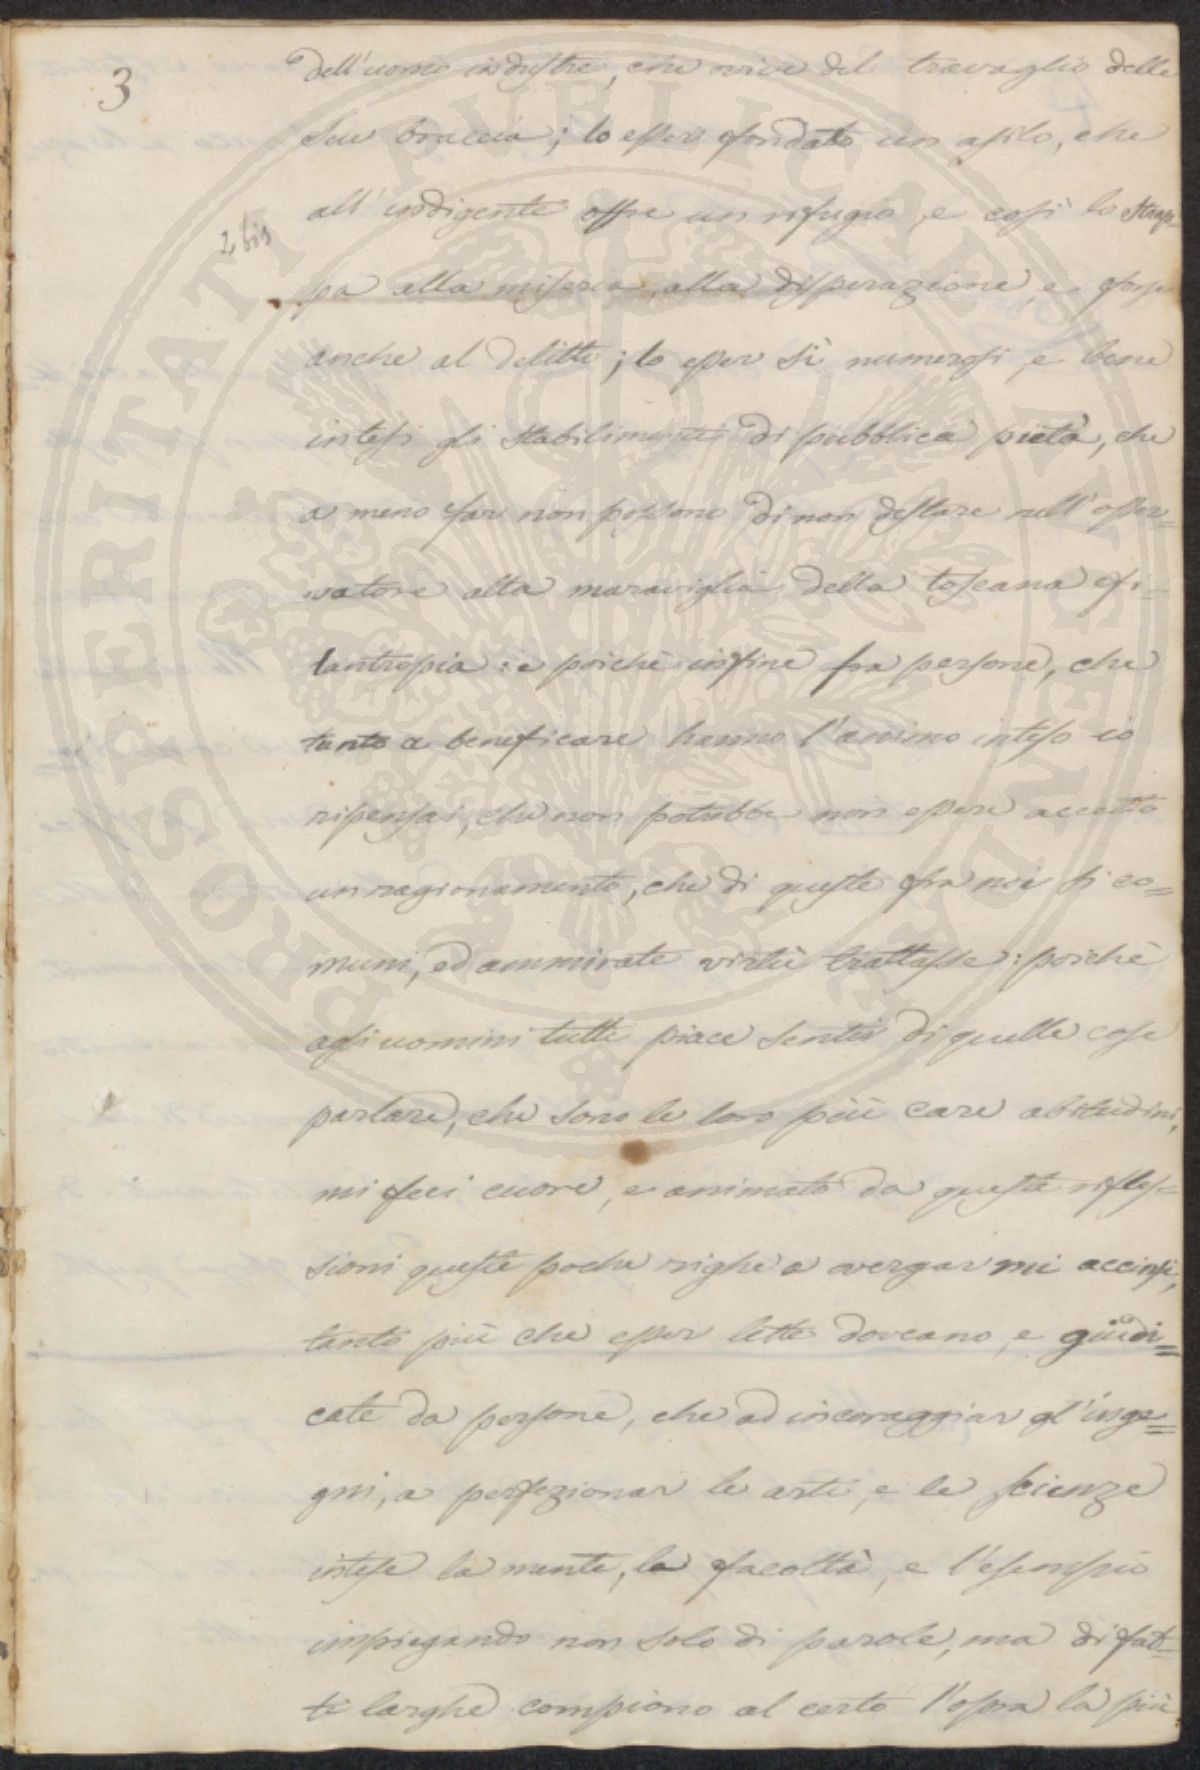 3
dell'uomo industre, che vive del travaglio delle
sue braccia; lo esser fondato un asilo, che
all'indigente offre un rifugio, e così lo strap-
2 bis
pa alla miseria, alla disperazione, e forse
anche al delitto; lo esser sì numerosi, e bene
intesi gli stabilimenti di pubblica pietà, che
a meno far non possono di non destare nell'osser=
vatore alta maraviglia della toscana fi=
lantropia: e poichè infine fra persone, che
tanto a beneficare hanno l'animo inteso io
ripensai, che non potrebbe non essere accetto
un ragionamento, che di queste fra noi sì co=
muni, ed ammirate virtù trattasse: poichè
agli uomini tutti piace sentir di quelle cose
parlare, che sono le loro più care abitudini,
mi feci cuore, e animato da queste rifles=
sioni queste poche righe a vergar mi accinsi,
tanto più che esser lette doveano, e giudi=
cate da persone, che ad incoraggiar gl'inge=
gni, a perfezionar le arti, e le scienze
intese la mente, le facoltà, e l'esempio
impiegando non solo di parole, ma di fat=
ti larghe compiono al certo l'opra la più
PROSPERITATI PUBLICAE AUGENDAE